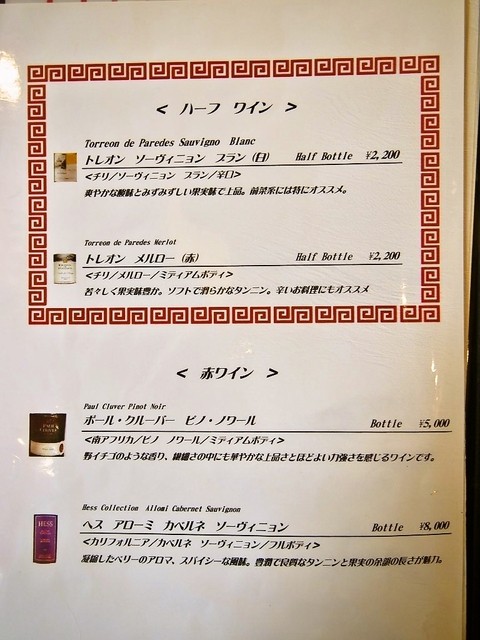 < ハーフ ワイン >
Torreon de Paredes Sauvigno Blanc
トレオン ソーヴィニョン ブラン (白) Half Bottle ¥2,200
<チリ/ソーヴィニョン ブラン/辛口>
爽やかな酸味とみずみずしい果実味で上品。前菜系には特にオススメ。
Torreon de Paredes Merlot
トレオン メルロー (赤) Half Bottle ¥2,200
<チリ/メルロー/ミティアムボティ>
若々しく果実味豊か。ソフトで滑らかなタンニン。辛いお料理にもオススメ
< 赤ワイン >
Paul Cluver Pinot Noir
ポール・クルーバー ピノ・ノワール Bottle ¥5,000
<南アフリカ/ピノ ノワール/ミティアムボティ>
野イチゴのような香り、繊細さの中にも華やかな上品さとほどよい力強さを感じるワインです。
Hess Collection Allomi Cabernet Sauvignon
ヘス アローミ カベルネ ソーヴィニョン Bottle ¥8,000
<カリフォルニア/カベルネ ソーヴィニョン/フルボティ>
凝縮したベリーのアロマ、スパイシーな風味。豊潤で良質なタンニンと果実の余韻の長さが魅力。
HESS